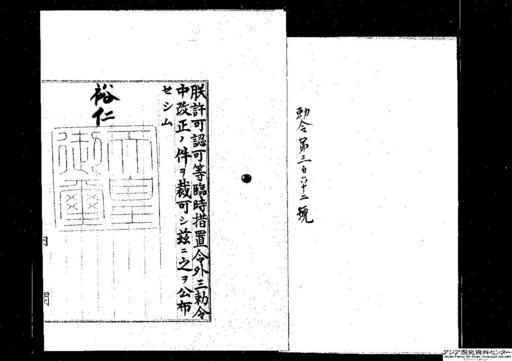 勅令第三百六十二號
朕許可認可等臨時措置令外三勅令
中改正ノ件ヲ裁可シ茲ニ之ヲ公布
セシム
裕仁
天皇
御璽
内
閣
アジア歴史資料センター